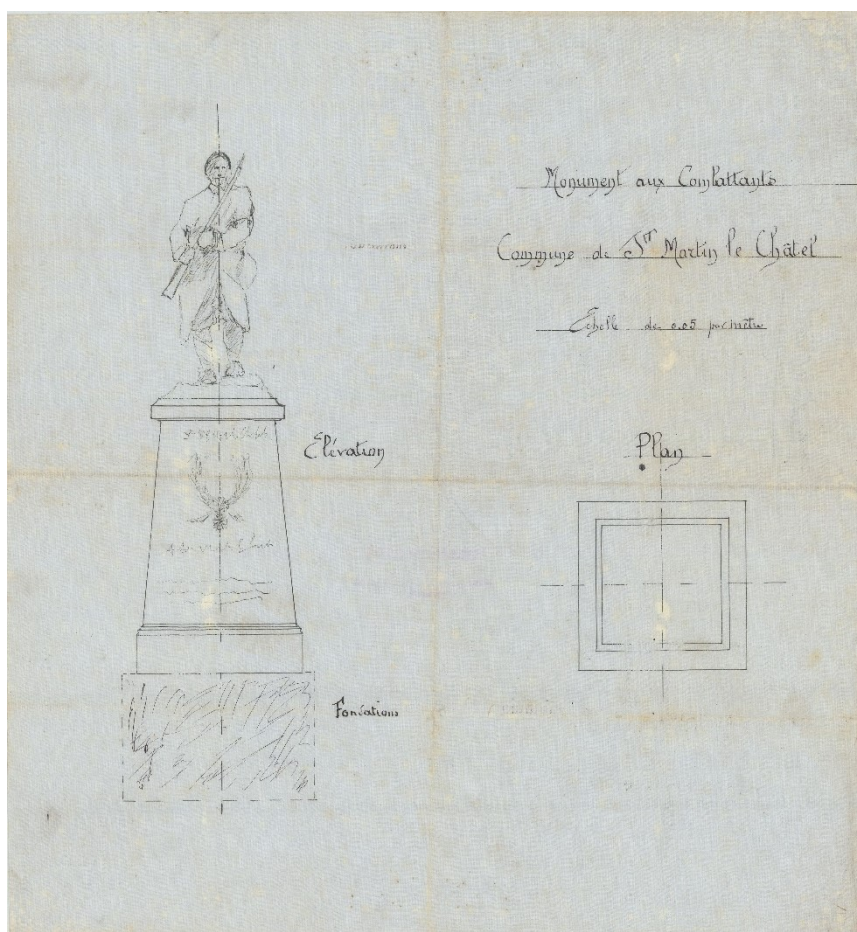 Monument aux Combattants
Commune de St Martin le Châtel
Echelle de 0.05 par mètre
Elévation
Plan
Fondations